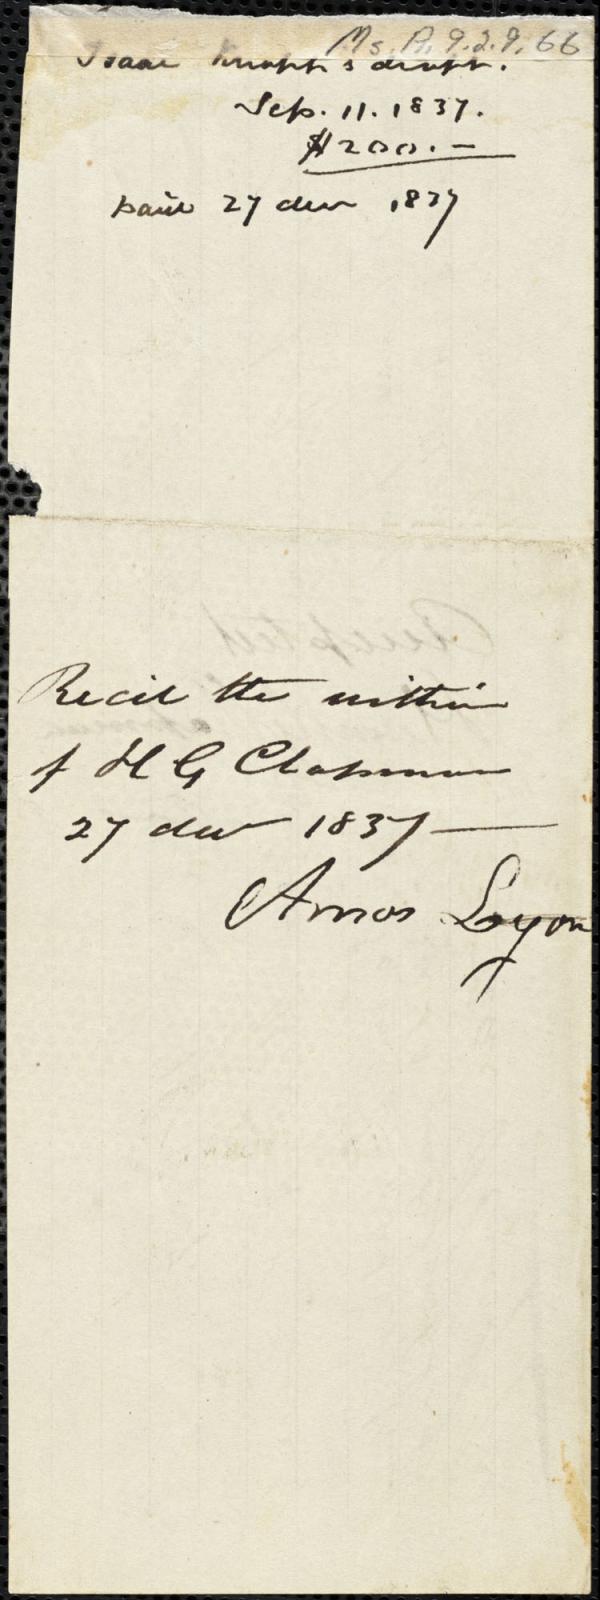 Ms. A. 9.2.9.66
Isaac Knapp's draft.
Sep. 11. 1837.
$200.—
paid 27 dec 1837
Recd the within
of H G Chapman
27 dec 1837—
Amos Lyon
Accepted